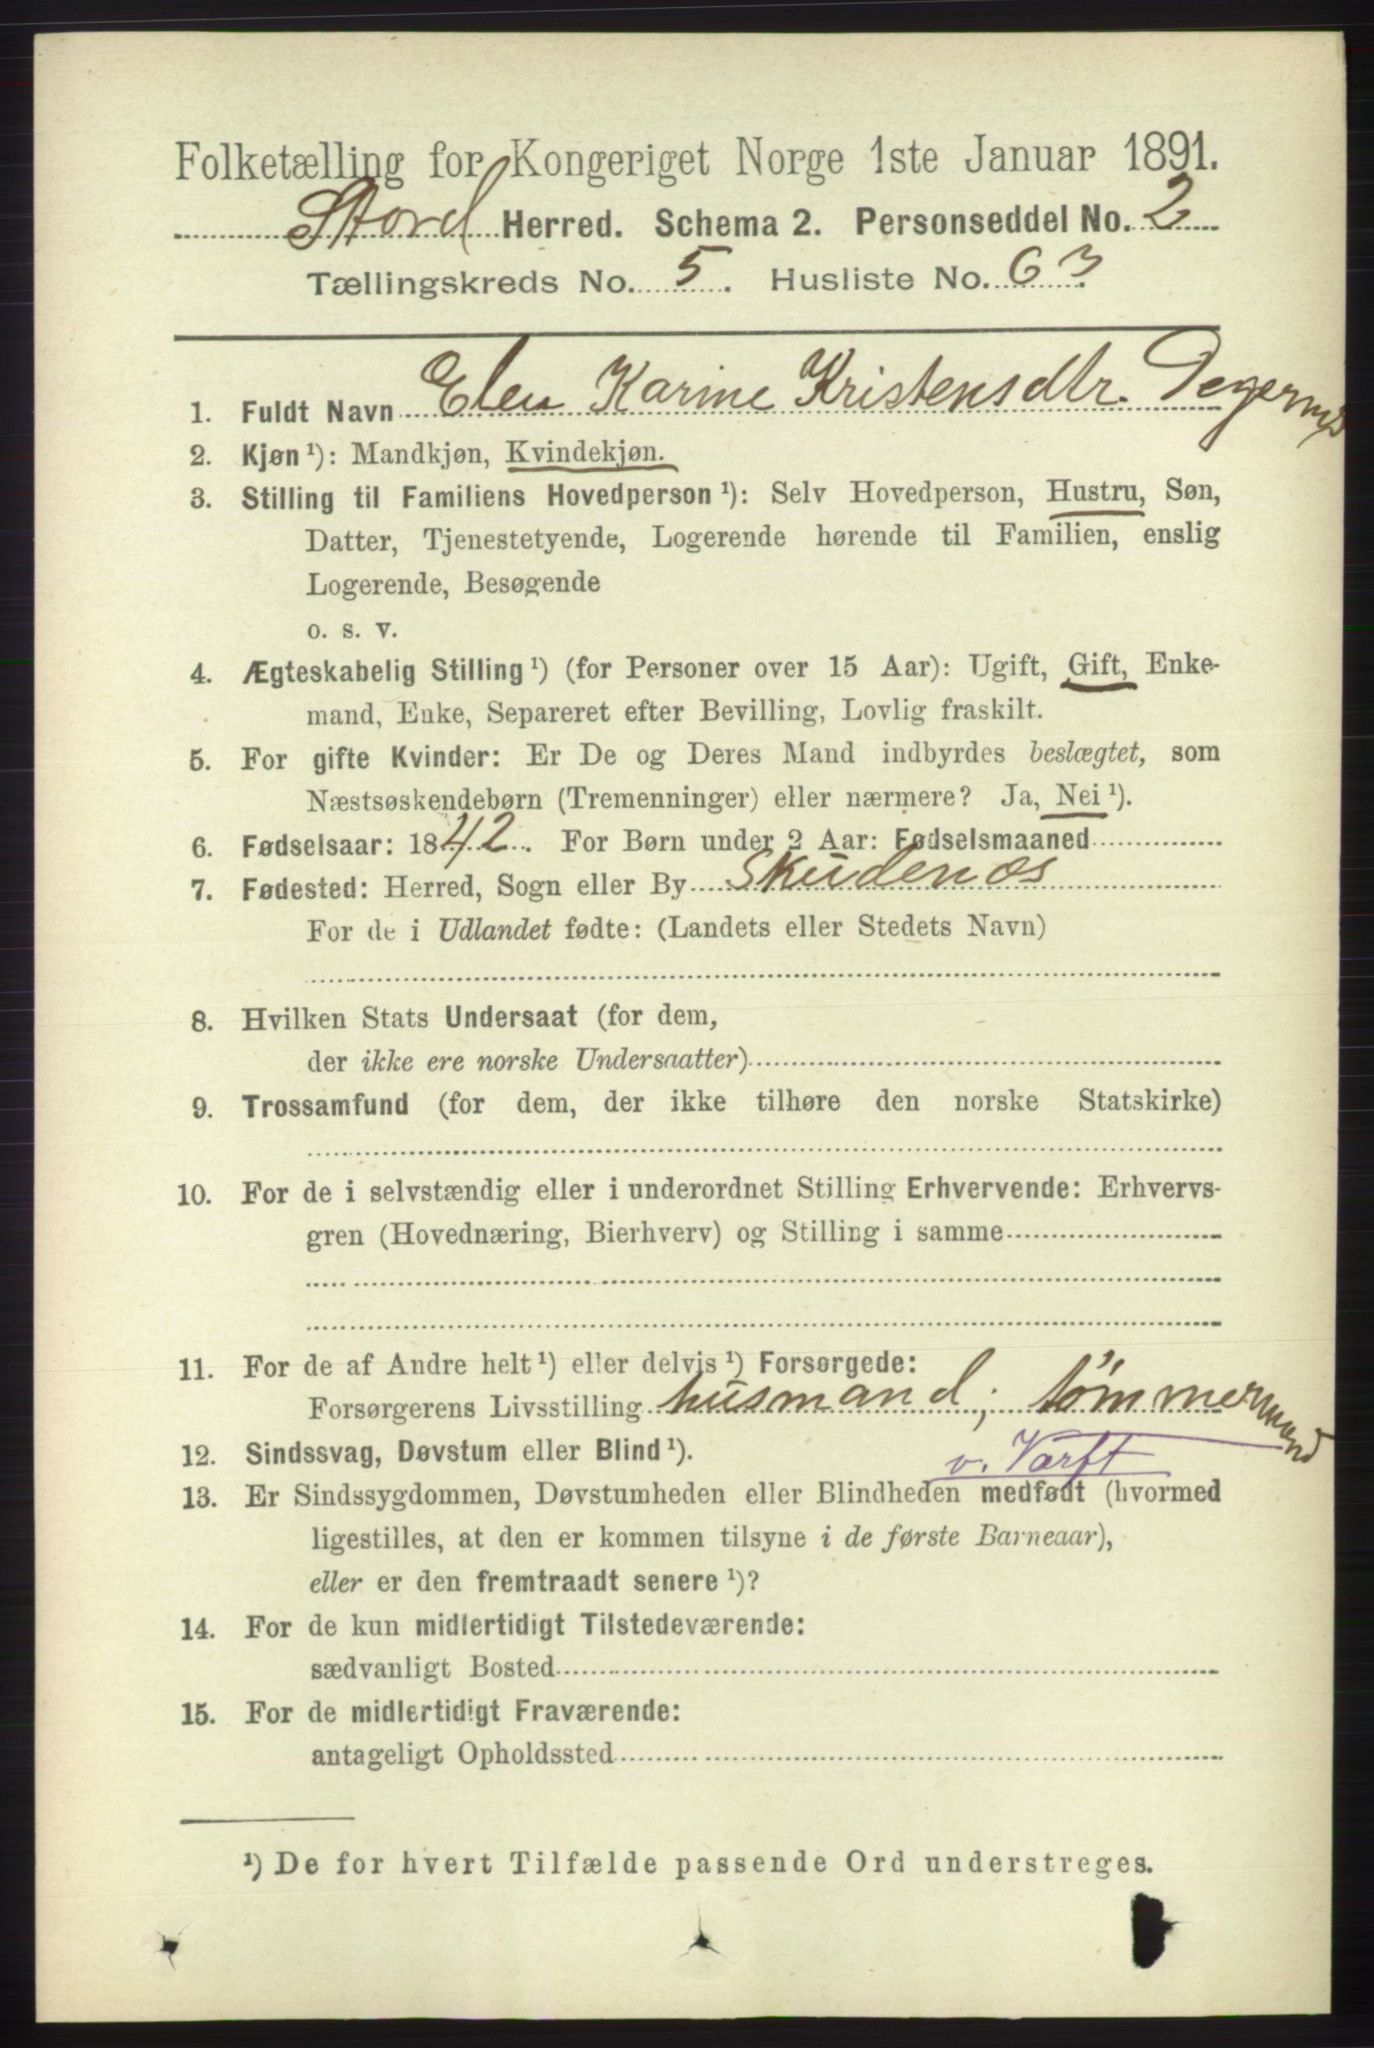 Folketælling for Kongeriget Norge 1ste Januar 1891.
Stord Herred. Schema 2. Personseddel No. 2
Tællingskreds No. 5. Husliste No. 63.
1. Fuldt Navn Elen Karine Kristensdtr. Degernes
2. Kjøn ¹): Mandkjøn, Kvindekjøn.
3. Stilling til Familiens Hovedperson ¹): Selv Hovedperson, Hustru, Søn,
Datter, Tjenestetyende, Logerende hørende til Familien, enslig
Logerende, Besøgende
o. s. v.
4. Ægteskabelig Stilling ¹) (for Personer over 15 Aar): Ugift, Gift, Enke-
mand, Enke, Separeret efter Bevilling, Lovlig fraskilt.
5. For gifte Kvinder: Er De og Deres Mand indbyrdes beslægtet, som
Næstsøskendebørn (Tremenninger) eller nærmere? Ja, Nei ¹).
6. Fødselsaar: 1842. For Børn under 2 Aar: Fødselsmaaned
7. Fødested: Herred, Sogn eller By Skudenes
For de i Udlandet fødte: (Landets eller Stedets Navn)
8. Hvilken Stats Undersaat (for dem,
der ikke ere norske Undersaatter)
9. Trossamfund (for dem, der ikke tilhøre den norske Statskirke)
10. For de i selvstændig eller i underordnet Stilling Erhvervende: Erhvervs-
gren (Hovednæring, Bierhverv) og Stilling i samme
11. For de af Andre helt ¹) eller delvis ¹) Forsørgede:
Forsørgerens Livsstilling husmand; tømmermand
v. Værft
12. Sindssvag, Døvstum eller Blind ¹).
13. Er Sindssygdommen, Døvstumheden eller Blindheden medfødt (hvormed
ligestilles, at den er kommen tilsyne i de første Barneaar),
eller er den fremtraadt senere ¹)?
14. For de kun midlertidigt Tilstedeværende:
sædvanligt Bosted
15. For de midlertidigt Fraværende:
antageligt Opholdssted
¹) De for hvert Tilfælde passende Ord understreges.